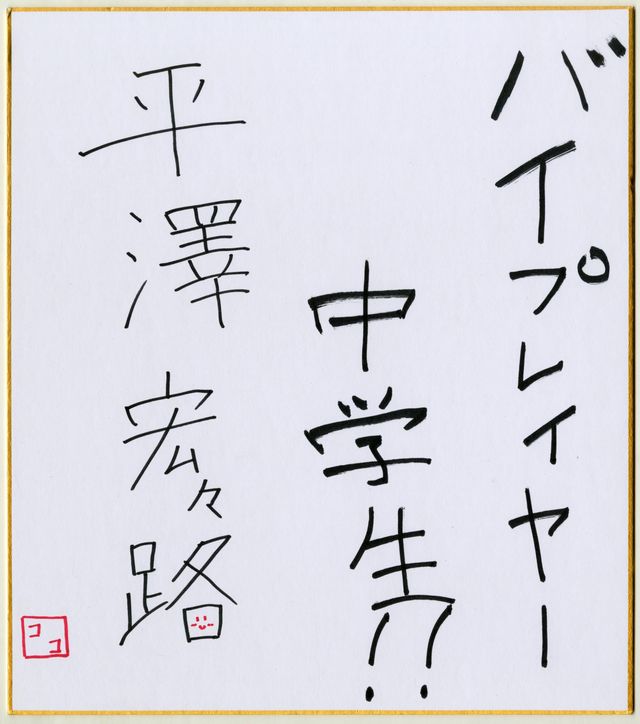 バイプレイヤー
中学生!!
平澤宏々路
ココ